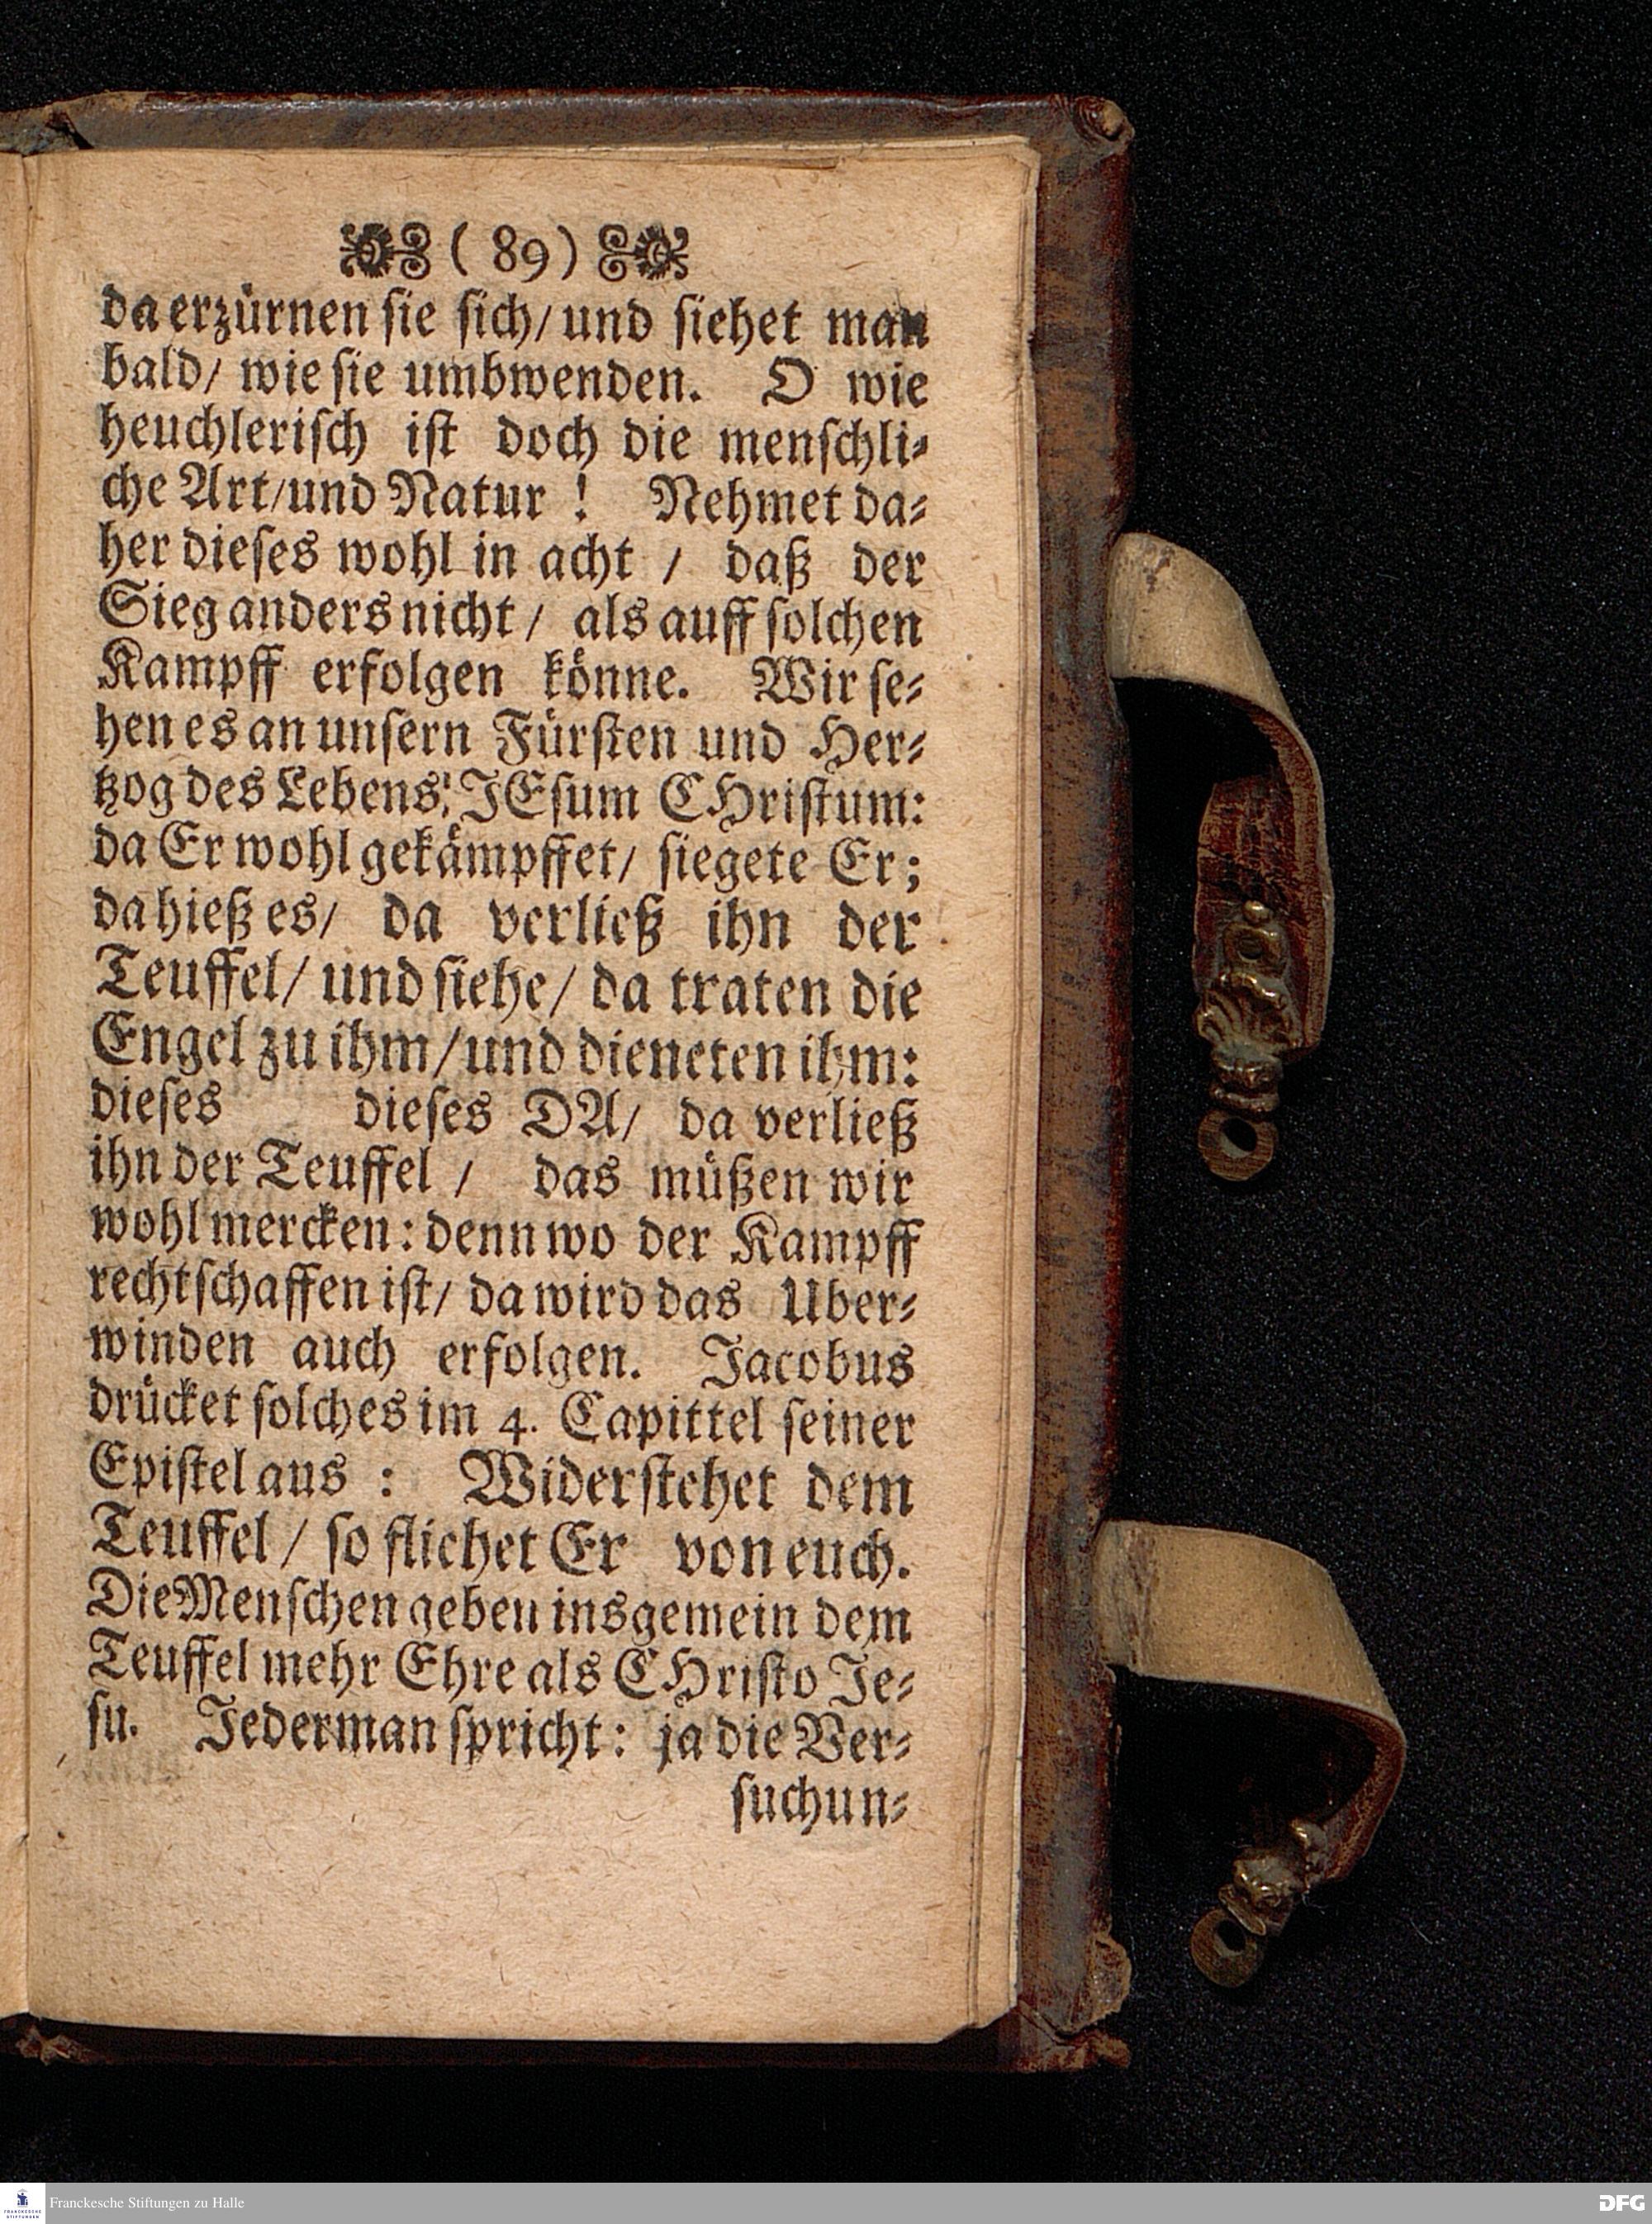 ( 89 )
da erzürnen sie sich/ und siehet man
bald/ wie sie umbwenden. O wie
heuchlerisch ist doch die menschli-
che Art/ und Natur ! Nehmet da-
her dieses wohl in acht / daß der
Sieg anders nicht / als auff solchen
Kampff erfolgen könne. Wir se-
hen es an unsern Fürsten und Her-
tzog des Lebens! JEsum CHristum:
da Er wohl gekämpffet/ siegete Er;
da hieß es/ da verließ ihn der
Teuffel/ und siehe/ da traten die
Engel zu ihm/ und dieneten ihm:
dieses dieses DA/ da verließ
ihn der Teuffel / das müßen wir
wohl mercken: denn wo der Kampff
rechtschaffen ist/ da wird das Uber-
winden auch erfolgen. Jacobus
drücket solches im 4. Capittel seiner
Epistel aus : Widerstehet dem
Teuffel / so fliehet Er von euch.
Die Menschen geben insgemein dem
Teuffel mehr Ehre als CHristo Je-
su. Jederman spricht: ja die Ver-
suchun-
FRANCKESCHE STIFTUNGEN
Franckesche Stiftungen zu Halle
DFG